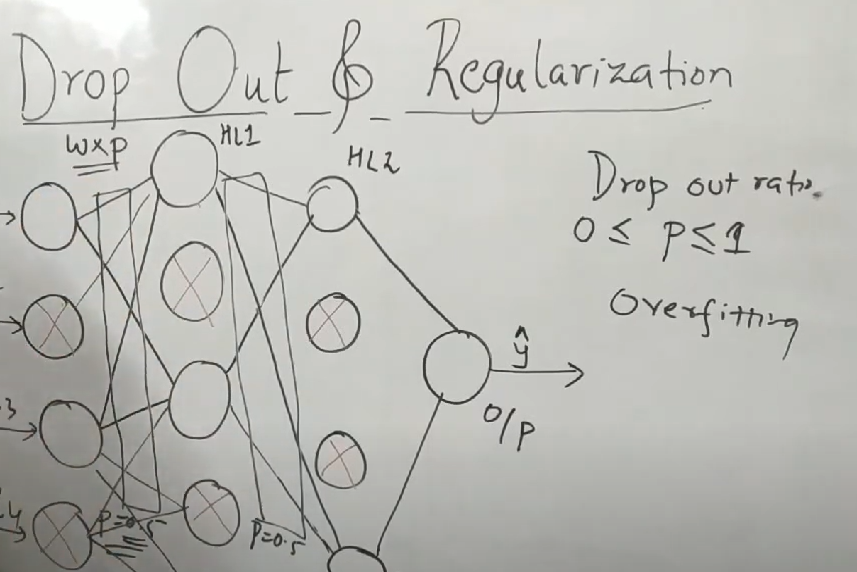 Drop Out & Regularization
W×p
HL1
HL2
Drop out ratio.
0 ≤ p ≤ 1
Overfitting
ŷ
O/p
3
4
P=0.5
P=0.5